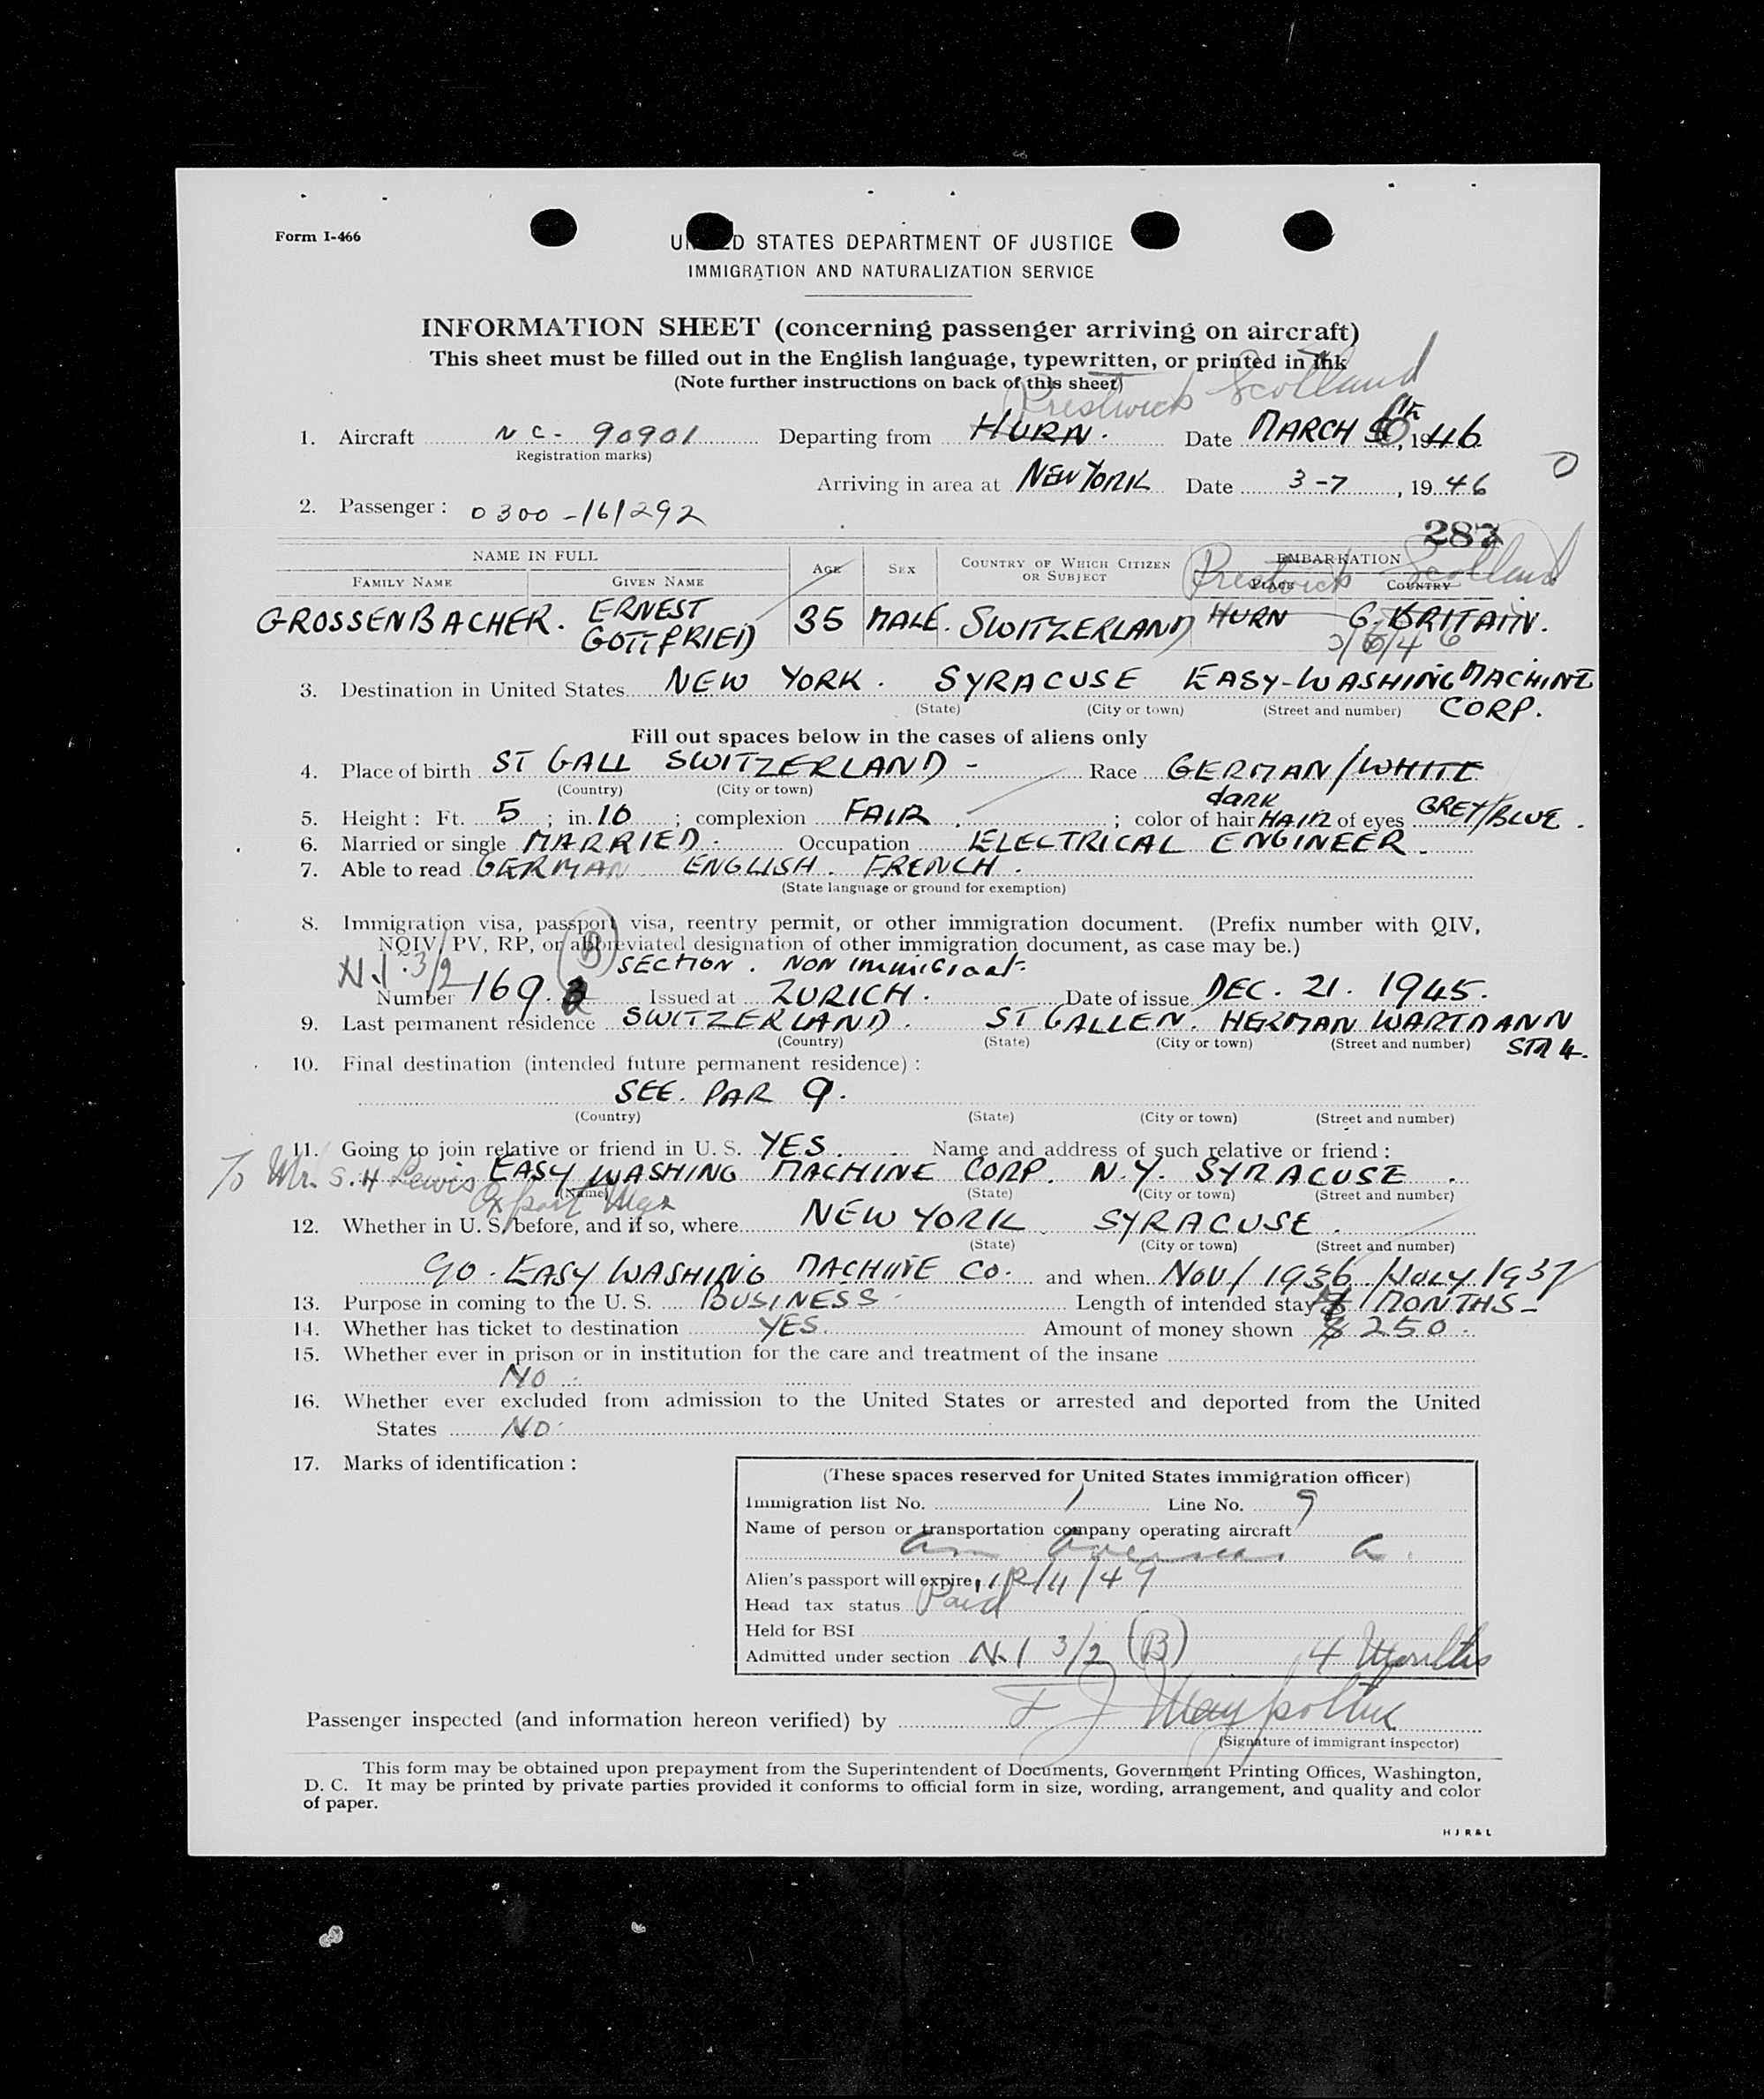 Form I-466
UNITED STATES DEPARTMENT OF JUSTICE
IMMIGRATION AND NATURALIZATION SERVICE
INFORMATION SHEET (concerning passenger arriving on aircraft)
This sheet must be filled out in the English language, typewritten, or printed in ink
(Note further instructions on back of this sheet)
Prestwick Scotland
1. Aircraft NC- 90901 Departing from HURN. Date MARCH 6th, 1946
(Registration marks)
Arriving in area at NEW YORK Date 3-7, 1946
2. Passenger: 0300-161292
287
NAME IN FULL AGE SEX COUNTRY OF WHICH CITIZEN OR SUBJECT EMBARKATION
FAMILY NAME GIVEN NAME PLACE COUNTRY
Prestwick Scotland
GROSSENBACHER. ERNEST GOTTFRIED 35 MALE. SWITZERLAND HURN G. BRITAIN.
3/6/46
3. Destination in United States NEW YORK. SYRACUSE EASY-WASHING MACHINE CORP.
(State) (City or town) (Street and number)
Fill out spaces below in the cases of aliens only
4. Place of birth ST GALL SWITZERLAND - Race GERMAN/WHITE
(Country) (City or town)
5. Height: Ft. 5; in. 10; complexion FAIR.; color of hair dark HAIR of eyes GREY/BLUE.
6. Married or single MARRIED. Occupation ELECTRICAL ENGINEER.
7. Able to read GERMAN ENGLISH. FRENCH.
(State language or ground for exemption)
8. Immigration visa, passport visa, reentry permit, or other immigration document. (Prefix number with QIV,
NQIV, PV, RP, or abbreviated designation of other immigration document, as case may be.)
N.I. 3/2 (B) SECTION. NON immiGrant.
Number 169. Issued at ZURICH. Date of issue DEC. 21. 1945.
9. Last permanent residence SWITZERLAND. ST GALLEN. HERMAN WARTMANN STR 4.
(Country) (State) (City or town) (Street and number)
10. Final destination (intended future permanent residence):
SEE. PAR 9.
(Country) (State) (City or town) (Street and number)
11. Going to join relative or friend in U. S. YES. Name and address of such relative or friend:
To Mr. S. H Lewis EASY WASHING MACHINE CORP. N.Y. SYRACUSE.
(Name) (State) (City or town) (Street and number)
Export Mgr
12. Whether in U. S. before, and if so, where NEW YORK SYRACUSE.
(State) (City or town) (Street and number)
EASY WASHING MACHINE CO. and when NOV/1936/JULY 1937
13. Purpose in coming to the U. S. BUSINESS. Length of intended stay MONTHS-
14. Whether has ticket to destination YES. Amount of money shown $ 250.
15. Whether ever in prison or in institution for the care and treatment of the insane
NO
16. Whether ever excluded from admission to the United States or arrested and deported from the United
States NO
17. Marks of identification:
(These spaces reserved for United States immigration officer)
Immigration list No. 1 Line No. 9
Name of person or transportation company operating aircraft
Am Overseas A.
Alien's passport will expire 12/11/49
Head tax status Paid
Held for BSI
Admitted under section N.I 3/2 (B) 4 Months
Passenger inspected (and information hereon verified) by
(Signature of immigrant inspector)
This form may be obtained upon prepayment from the Superintendent of Documents, Government Printing Offices, Washington,
D. C. It may be printed by private parties provided it conforms to official form in size, wording, arrangement, and quality and color
of paper.
H J R & L